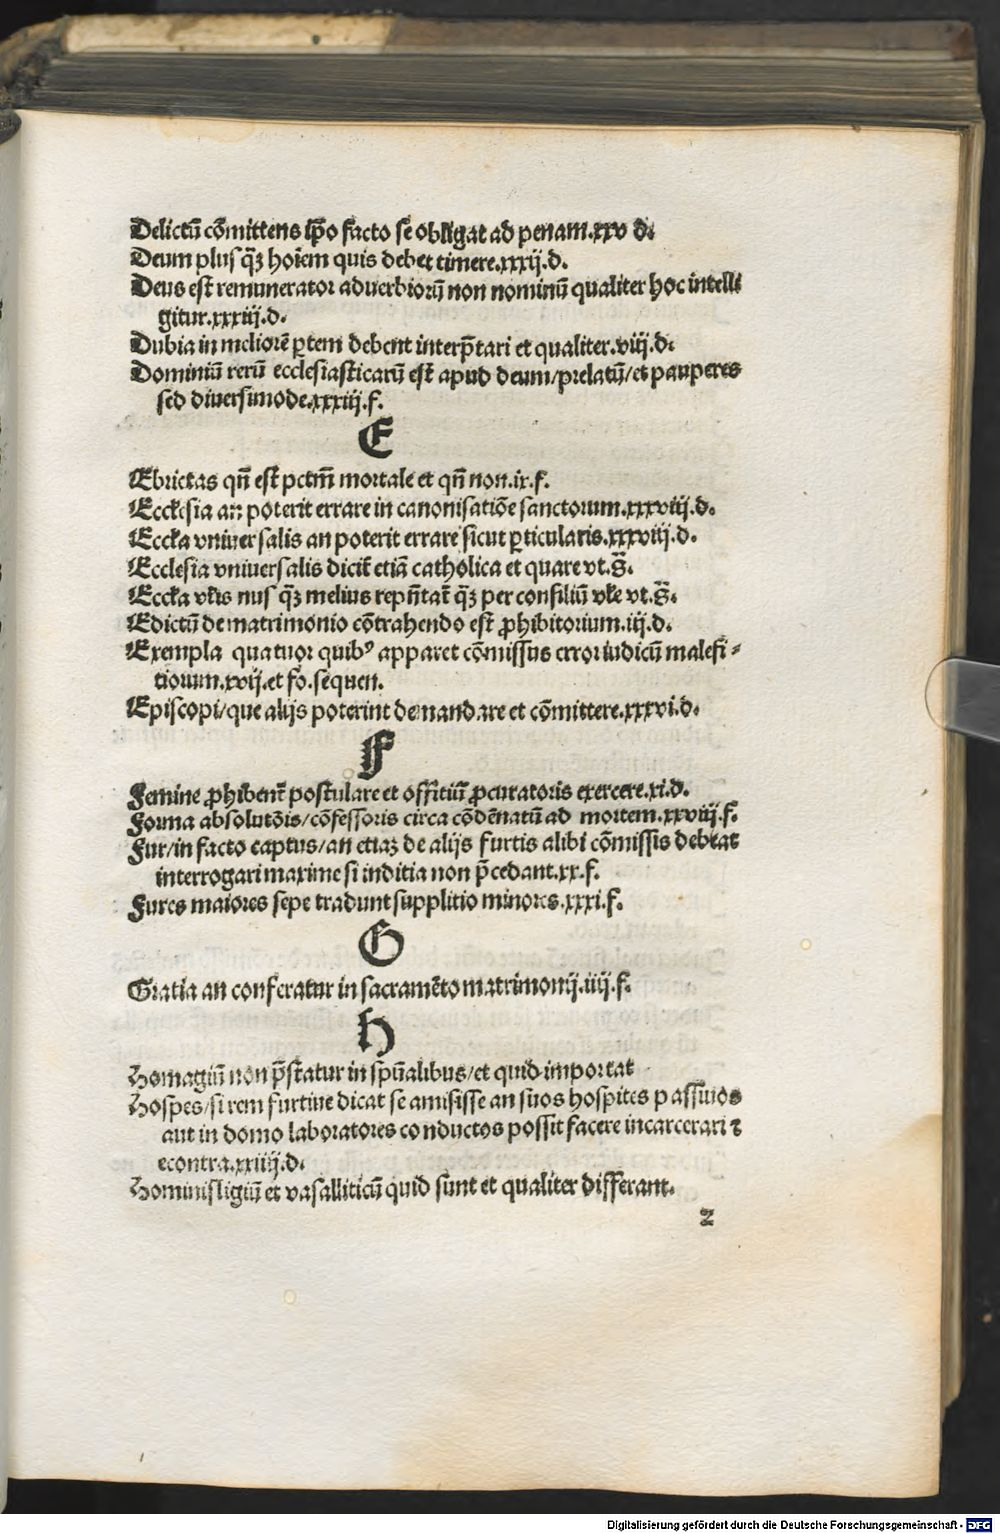 Delictū cōmittens ip̄o facto se obligat ad penam.xxv d.
Deum plus q̄ꝫ hoīem quis debet timere.xxxij.d.
Deus est remunerator aduerbiorū non nominū qualiter hoc intelli
gitur.xxxiij.d.
Dubia in meliorē ꝑtem debent interp̄tari et qualiter.viij.d.
Dominiū rerū ecclesiasticarū est apud deum/prelatū/et pauperes
sed diuersimode.xxxiij.f.
E
Ebrietas qn̄ est pctm̄ mortale et qn̄ non.ix.f.
Ecclesia an poterit errare in canonisatiōe sanctorum.xxxviij.d.
Eccłia vniuersalis an poterit errare sicut ꝑticularis.xxxviij.d.
Ecclesia vniuersalis dicit̄ etiā catholica et quare vt.S̄.
Eccłia vłis nus q̄ꝫ melius repn̄tat̄ q̄ꝫ per consiliū vłe vt.S̄.
Edictū de matrimonio cōtrahendo est ꝓhibitorium.iij.d.
Exempla quatuor quibꝰ apparet cōmissus error iudicū malefi⸗
tiorum.xvij.et fo.sequen.
Episcopi/que alijs poterint demandare et cōmittere.xxxvi.d.
F
Femine ꝓhibent̄ postulare et offitiū ꝓcuratoris exercere.xi.d.
Forma absolutōis/cōfessoris circa cōdēnatū ad mortem.xxviij.f.
Fur/in facto captus/an etiaꝫ de alijs furtis alibi cōmissis debeat
interrogari maxime si inditia non p̄cedant.xx.f.
Fures maiores sepe tradunt supplitio minores.xxxi.f.
G
Gratia an conferatur in sacramēto matrimonij.iiij.f.
H
Homagiū non p̄statur in spūalibus/et quid importat
Hospes/si rem furtiue dicat se amisisse an suos hospites passiuos
aut in domo laboratores conductos possit facere incarcerari ꝛ
econtra.xxiiij.d.
Hominisligiū et vasalliticū quid sunt et qualiter differant.
2
Digitalisierung gefördert durch die Deutsche Forschungsgemeinschaft - DFG